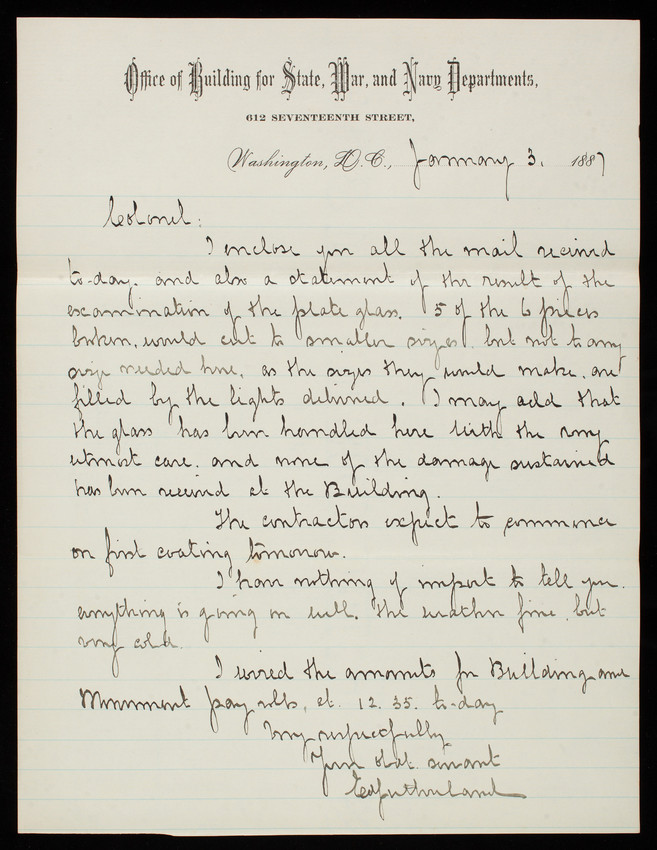 Office of Building for State, War, and Navy Departments,
612 SEVENTEENTH STREET,
Washington, D.C., January 3, 1887
Colonel:
I enclose you all the mail received
to-day, and also a statement of the result of the
examination of the plate glass. 5 of the 6 pieces
broken, would cut to smaller sizes, but not to any
size needed here, as the sizes they would make, are
filled by the lights delivered. I may add that
the glass has been handled here with the very
utmost care, and none of the damage sustained
has been received at the Building.
The contractors expect to commence
on first coating tomorrow.
I have nothing of import to tell you.
everything is going on well. The weather fine, but
very cold.
I wired the amounts for Building and
Monument pay rolls, at 12.35. to-day
Very respectfully
Your obt. servant
Sutherland